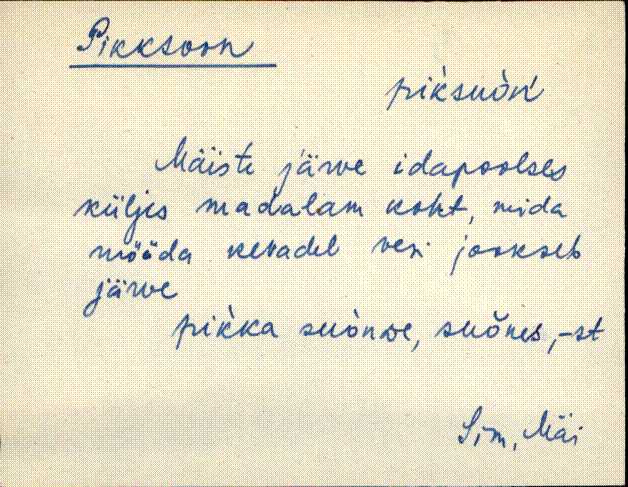 Pikksoon
pik̀suòǹ
Mäiste järve idapoolses
küljes madalam koht, mida
mööda kevadel vesi jookseb
järve
pik̀ka suònwe, suõnes, -st
Sim, Mäi